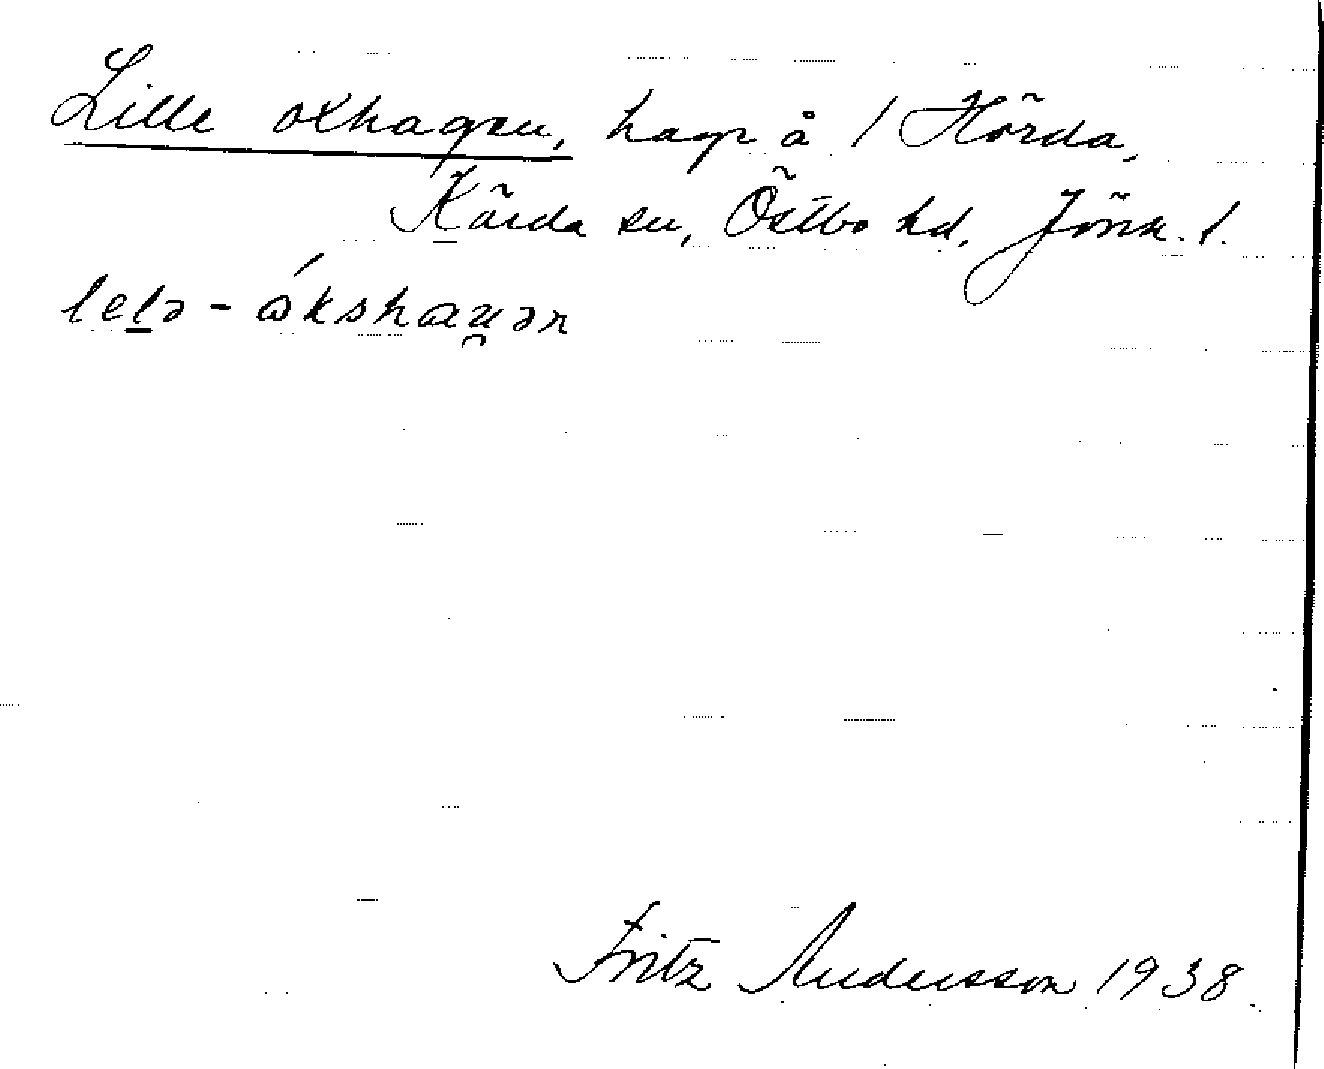 Lille oxhagen, hage å 1 Hörda,
Kärda sn, Östbo hd, Jönk. l.
lelə - ókshau̯ən
Fritz Andersson 1938